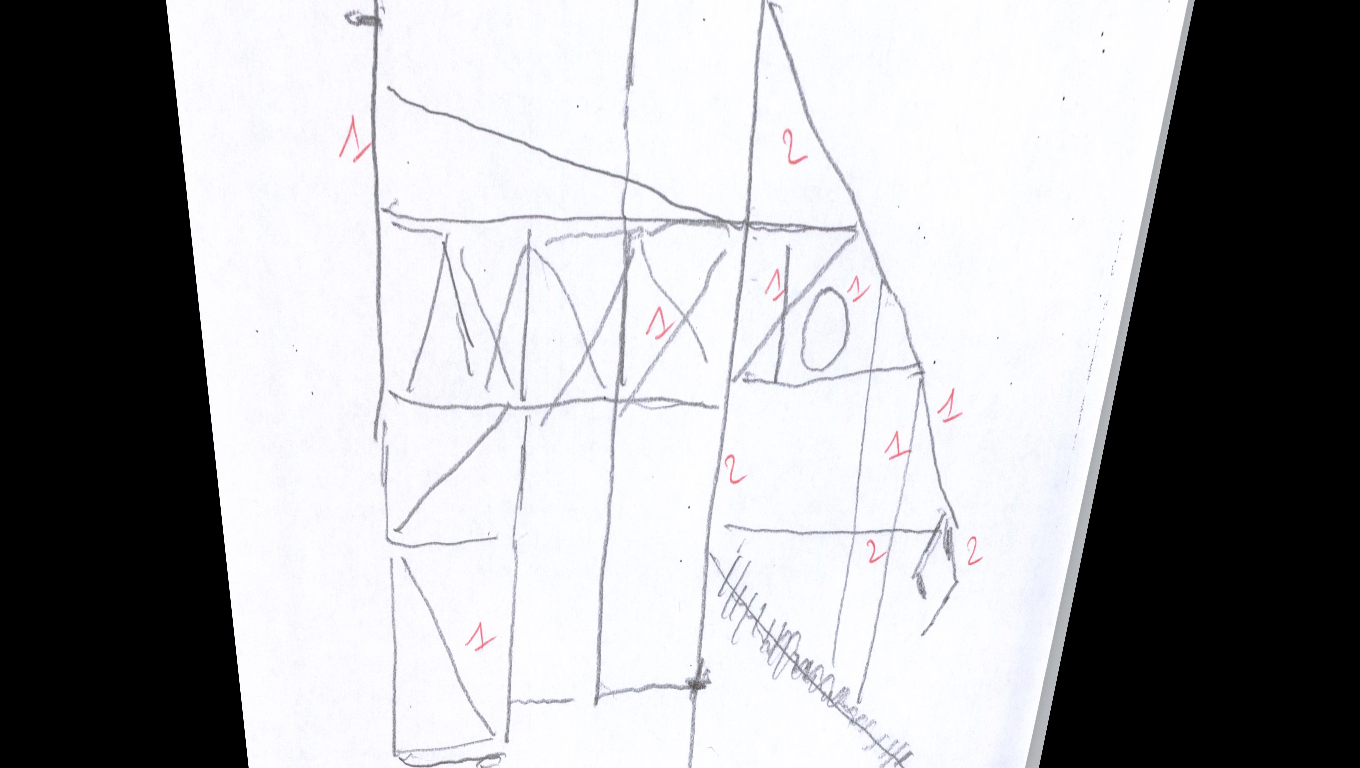 1
2
1
1
1
1
1
2
2
2
1